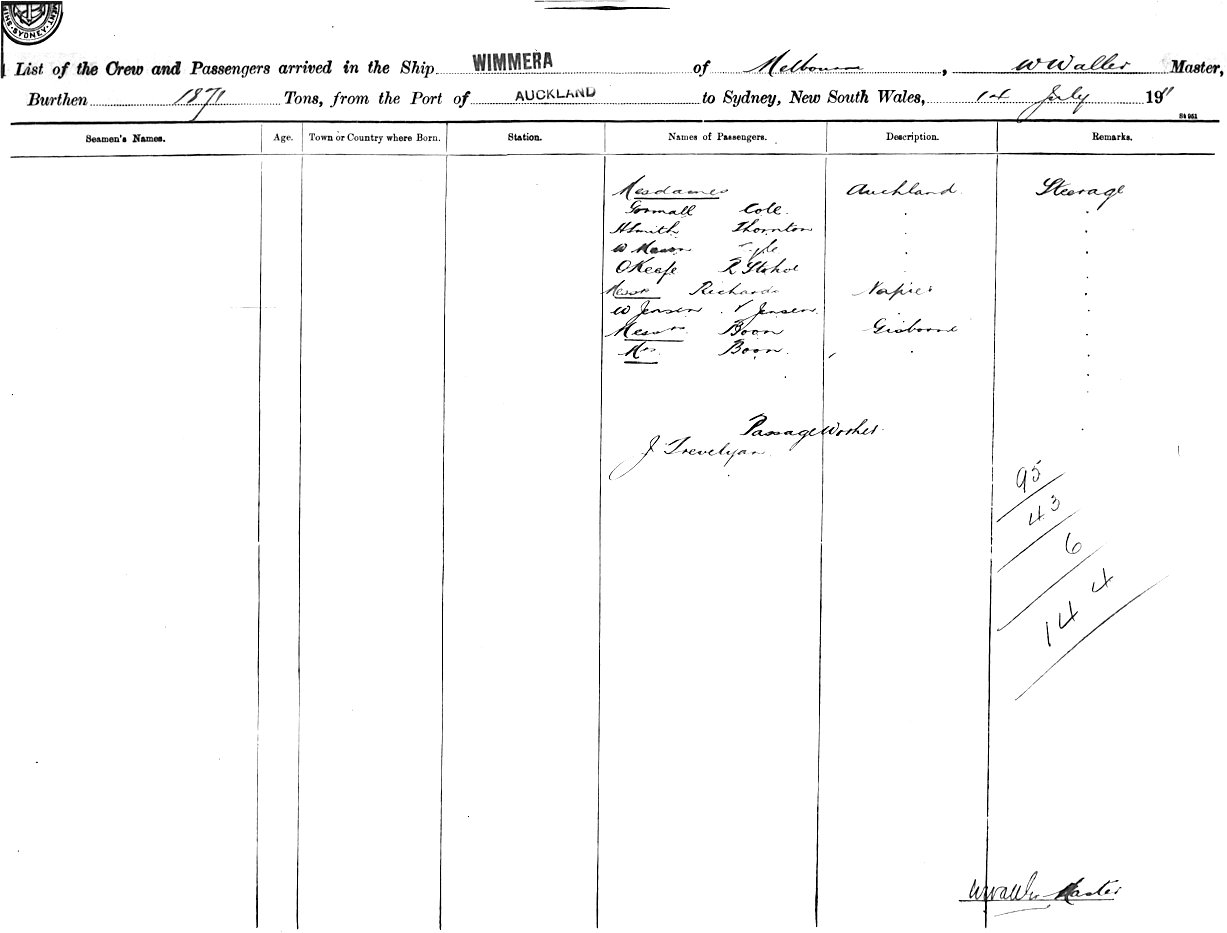 SYDNEY
List of the Crew and Passengers arrived in the Ship WIMMERA of Melbourne, W Waller Master,
Burthen 1871 Tons, from the Port of AUCKLAND to Sydney, New South Wales, 14 July 1911
St 951
Seamen's Names. Age. Town or Country where Born. Station. Names of Passengers. Description. Remarks.
Mesdames Auckland Steerage
Gormall Cole
H Smith Thornton
W Mason
O Keefe R
Messrs Richards Napier
W Jensen V Jensen
Messrs Boon Gisborne
Mrs Boon
Passage Worker
J Trevelyan
95
43
6
144
W Waller Master